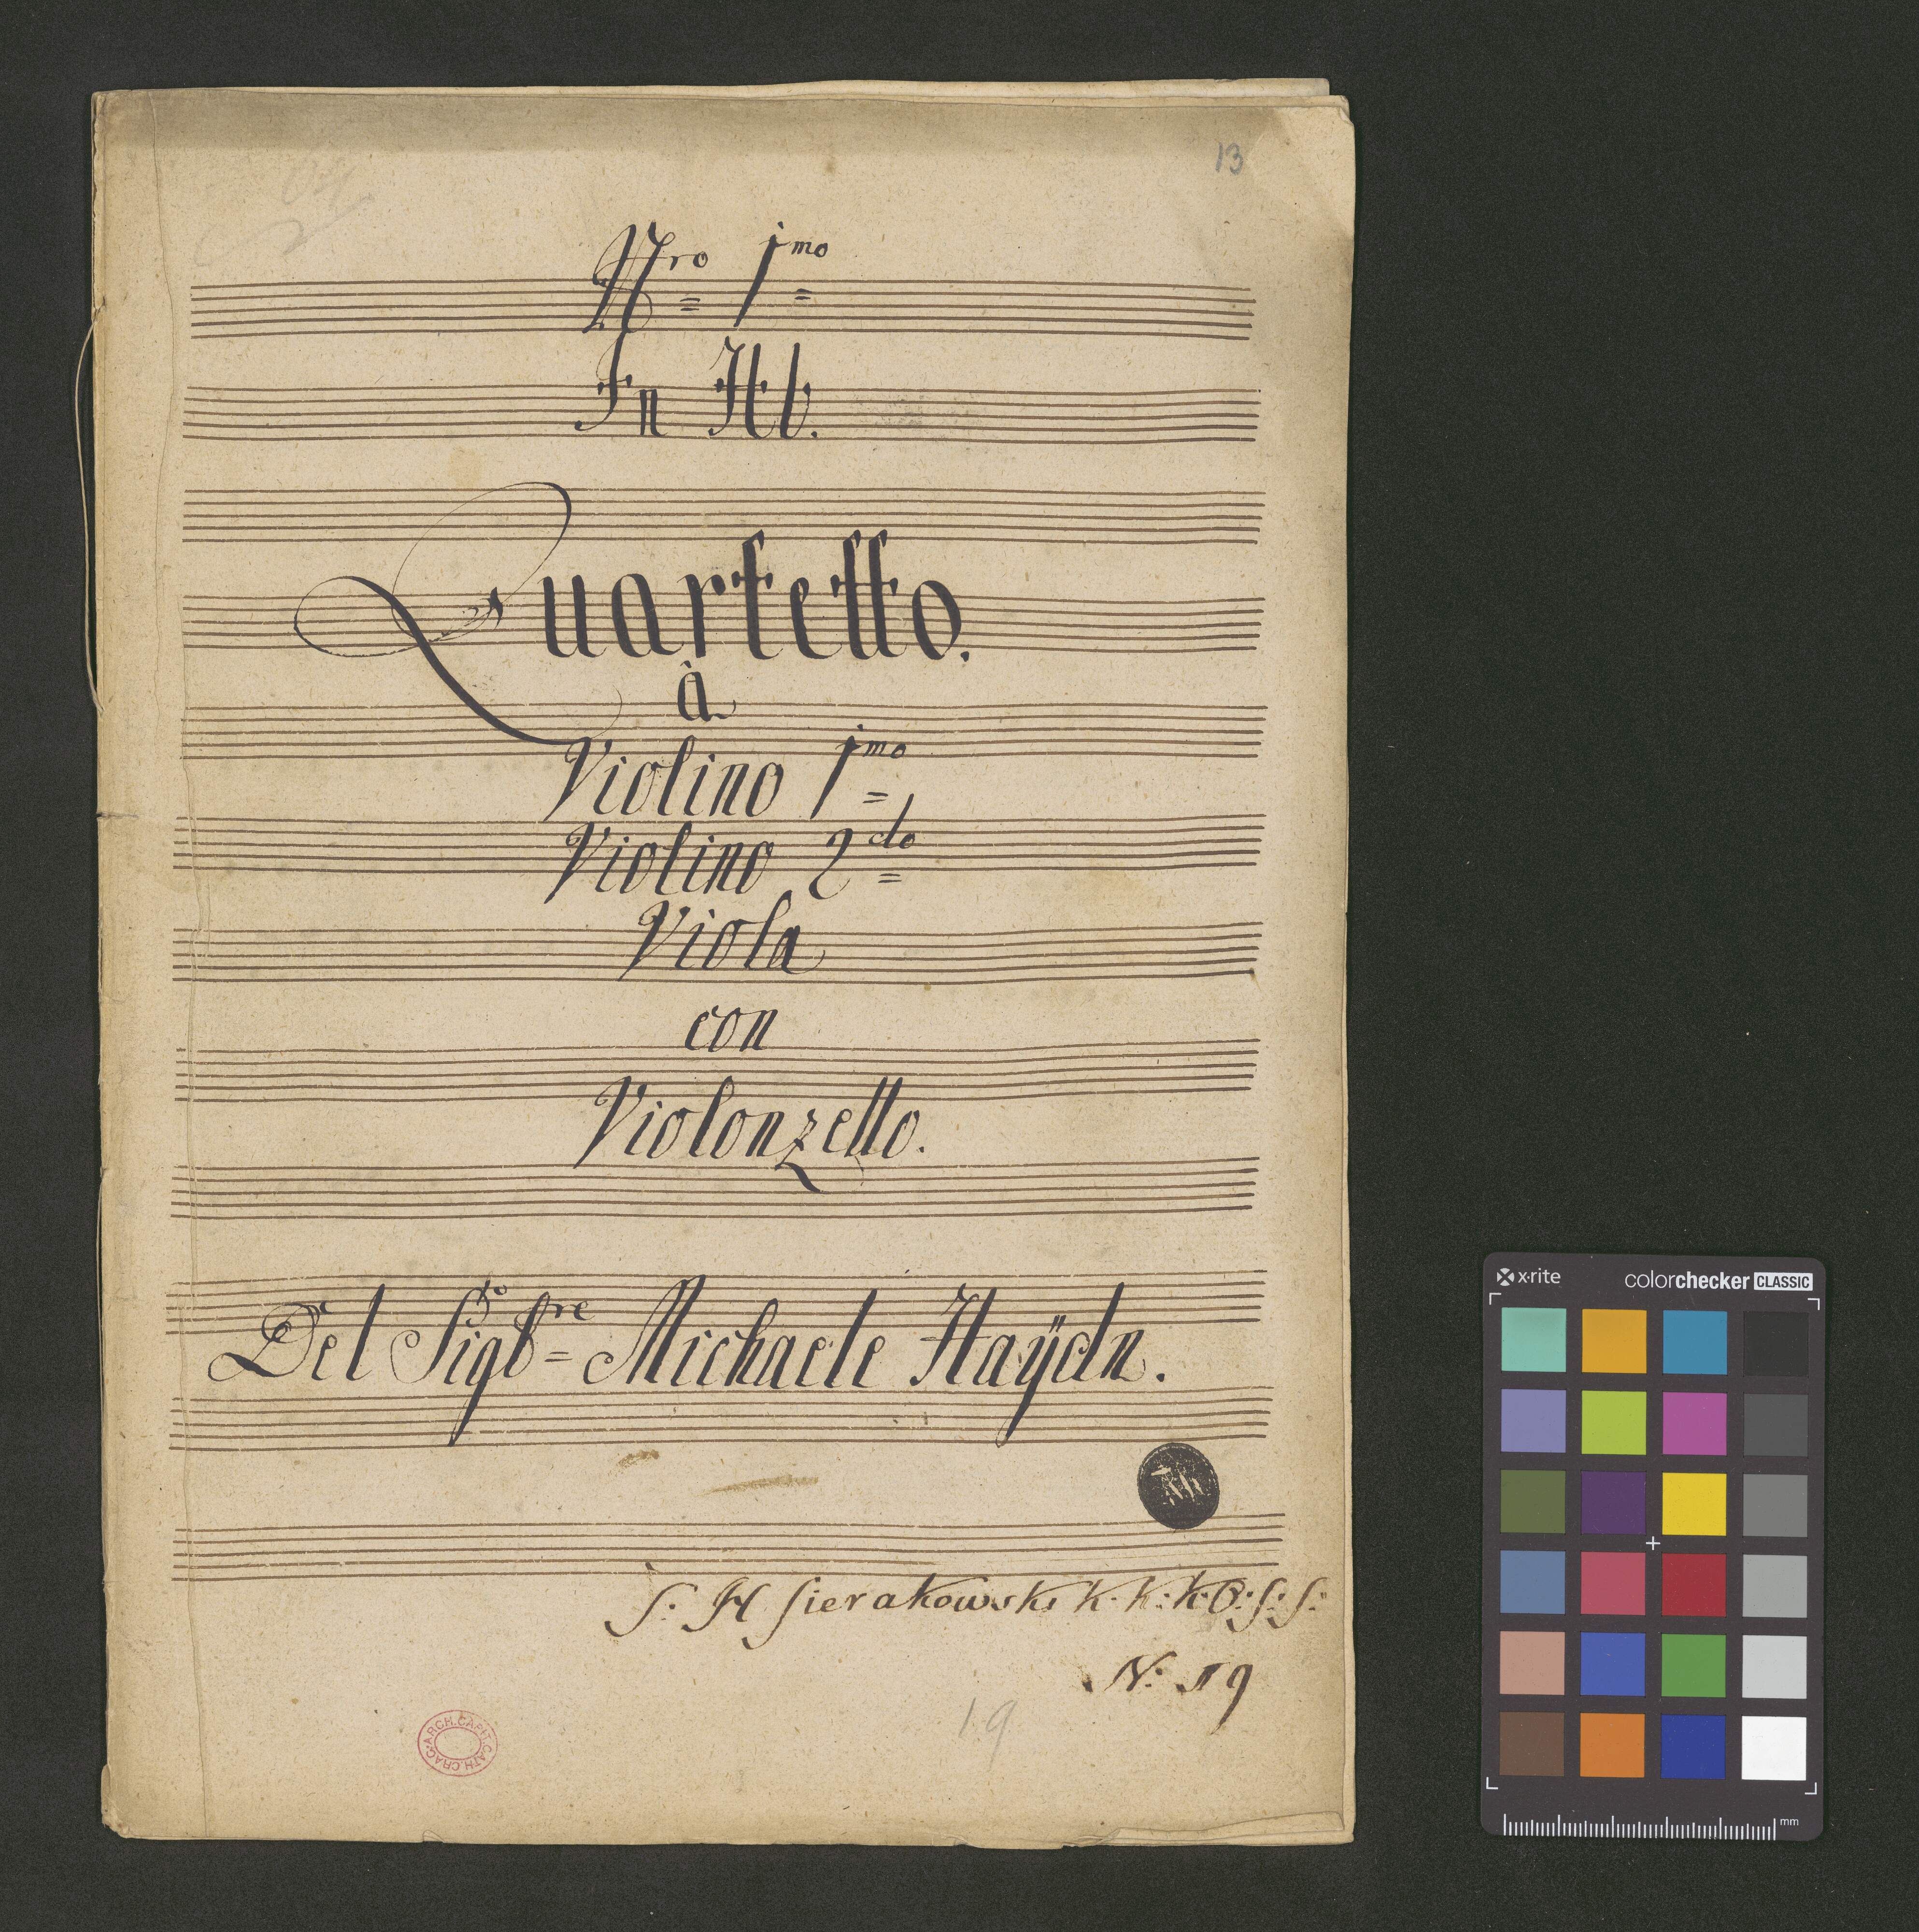 13
Nro 1mo
In Hb.
Quartetto.
à
Violino 1mo
Violino 2do
Viola
con
Violonzello.
Del Sigre Michaele Haÿdn.
S: H Sierakowski K. K: K: O: S: S:
N: 19
19
ARCH. CAPIT. CATH. CRAC.
x·rite colorchecker CLASSIC
mm